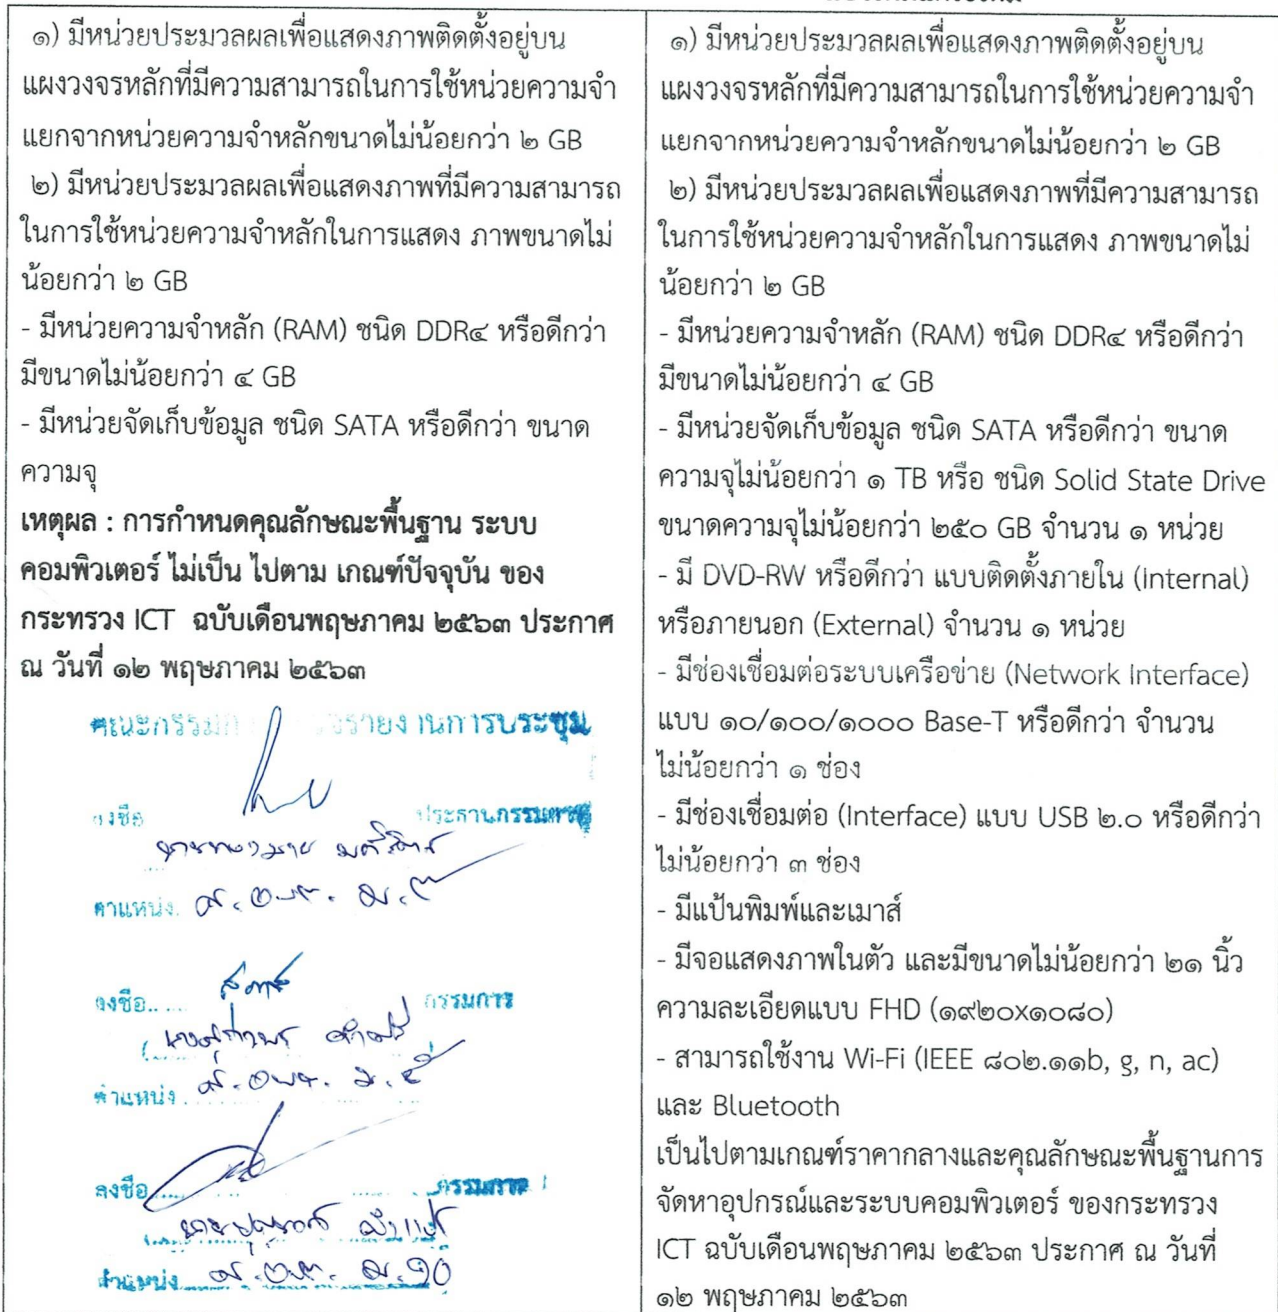 ๑) มีหน่วยประมวลผลเพื่อแสดงภาพติดตั้งอยู่บน
แผงวงจรหลักที่มีความสามารถในการใช้หน่วยความจำ
แยกจากหน่วยความจำหลักขนาดไม่น้อยกว่า ๒ GB
๒) มีหน่วยประมวลผลเพื่อแสดงภาพที่มีความสามารถ
ในการใช้หน่วยความจำหลักในการแสดง ภาพขนาดไม่
น้อยกว่า ๒ GB
- มีหน่วยความจำหลัก (RAM) ชนิด DDR๔ หรือดีกว่า
มีขนาดไม่น้อยกว่า ๔ GB
- มีหน่วยจัดเก็บข้อมูล ชนิด SATA หรือดีกว่า ขนาด
ความจุ
เหตุผล : การกำหนดคุณลักษณะพื้นฐาน ระบบ
คอมพิวเตอร์ ไม่เป็น ไปตาม เกณฑ์ปัจจุบัน ของ
กระทรวง ICT ฉบับเดือนพฤษภาคม ๒๕๖๓ ประกาศ
ณ วันที่ ๑๒ พฤษภาคม ๒๕๖๓
รายงานการประชุม
ลงชื่อ ประธานกรรมการ
ตำแหน่ง ส.อบต. ม.๙
ลงชื่อ กรรมการ
ตำแหน่ง ส.อบต. ม.๕
ลงชื่อ กรรมการ
ตำแหน่ง ส.อบต. ม.๑๐
๑) มีหน่วยประมวลผลเพื่อแสดงภาพติดตั้งอยู่บน
แผงวงจรหลักที่มีความสามารถในการใช้หน่วยความจำ
แยกจากหน่วยความจำหลักขนาดไม่น้อยกว่า ๒ GB
๒) มีหน่วยประมวลผลเพื่อแสดงภาพที่มีความสามารถ
ในการใช้หน่วยความจำหลักในการแสดง ภาพขนาดไม่
น้อยกว่า ๒ GB
- มีหน่วยความจำหลัก (RAM) ชนิด DDR๔ หรือดีกว่า
มีขนาดไม่น้อยกว่า ๔ GB
- มีหน่วยจัดเก็บข้อมูล ชนิด SATA หรือดีกว่า ขนาด
ความจุไม่น้อยกว่า ๑ TB หรือ ชนิด Solid State Drive
ขนาดความจุไม่น้อยกว่า ๒๕๐ GB จำนวน ๑ หน่วย
- มี DVD-RW หรือดีกว่า แบบติดตั้งภายใน (Internal)
หรือภายนอก (External) จำนวน ๑ หน่วย
- มีช่องเชื่อมต่อระบบเครือข่าย (Network Interface)
แบบ ๑๐/๑๐๐/๑๐๐๐ Base-T หรือดีกว่า จำนวน
ไม่น้อยกว่า ๑ ช่อง
- มีช่องเชื่อมต่อ (Interface) แบบ USB ๒.๐ หรือดีกว่า
ไม่น้อยกว่า ๓ ช่อง
- มีแป้นพิมพ์และเมาส์
- มีจอแสดงภาพในตัว และมีขนาดไม่น้อยกว่า ๒๑ นิ้ว
ความละเอียดแบบ FHD (๑๙๒๐x๑๐๘๐)
- สามารถใช้งาน Wi-Fi (IEEE ๘๐๒.๑๑b, g, n, ac)
และ Bluetooth
เป็นไปตามเกณฑ์ราคากลางและคุณลักษณะพื้นฐานการ
จัดหาอุปกรณ์และระบบคอมพิวเตอร์ ของกระทรวง
ICT ฉบับเดือนพฤษภาคม ๒๕๖๓ ประกาศ ณ วันที่
๑๒ พฤษภาคม ๒๕๖๓